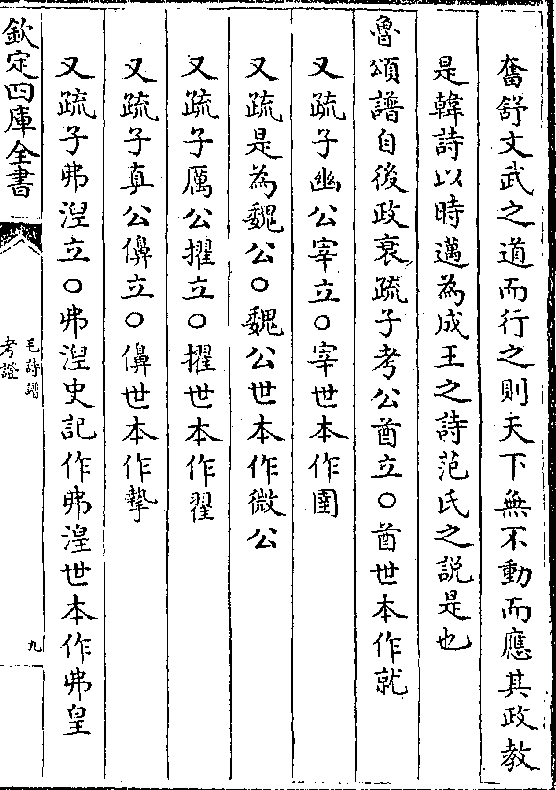 奮舒文武之道而行之則天下無不動而應其政教
是韓詩以時邁為成王之詩范氏之説是也
魯頌譜自後政衰疏子考公酋立○酋世本作就
又疏子幽公宰立○宰世本作圉
又疏是為魏公○魏公世本作微公
又疏子厲公擢立○擢世本作翟
又疏子真公濞立○濞世本作摯
又疏子弗湟立○弗湟史記作弗湟世本作弗皇
欽定四庫全書
毛詩譜
考證
九